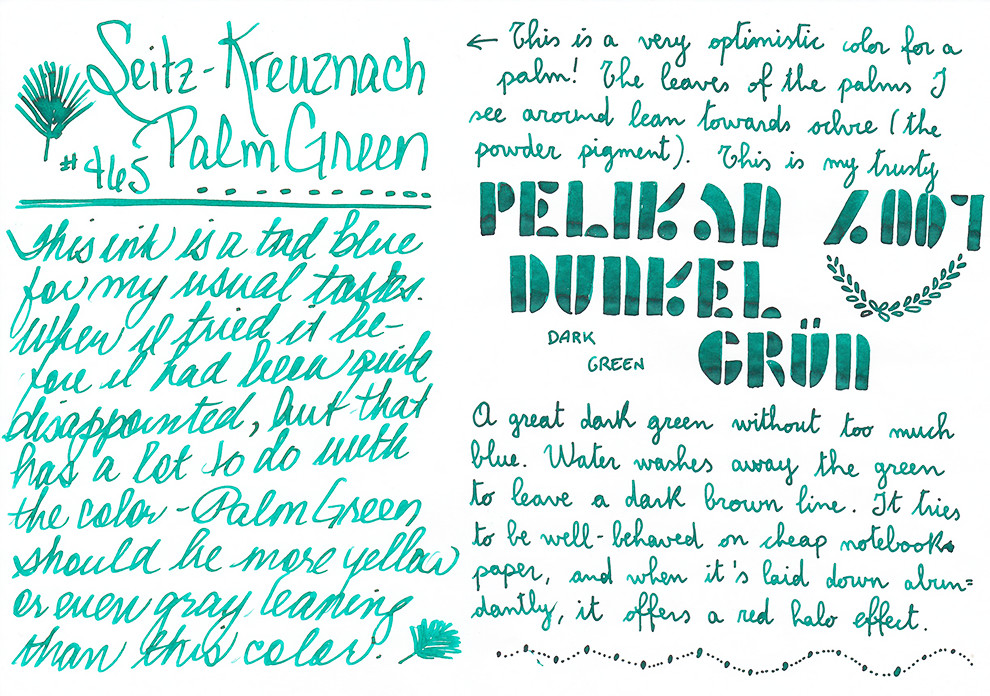 Seitz-Kreuznach
Palm Green
#465
This ink is a tad blue
for my usual tasks.
When I tried it be-
fore it had been quite
disappointed, but that
has a lot to do with
the color - Palm Green
should be more yellow
or even gray leaning
than this color.
← This is a very optimistic color for a
palm! The leaves of the palms I
see around lean towards ochre (the
powder pigment). This is my trusty
PELIKAN 4001
DUNKEL
GRÜN
DARK
GREEN
A great dark green without too much
blue. Water washes away the green
to leave a dark brown line. It tries
to be well-behaved on cheap notebook
paper, and when it's laid down abun=
dantly, it offers a red halo effect.